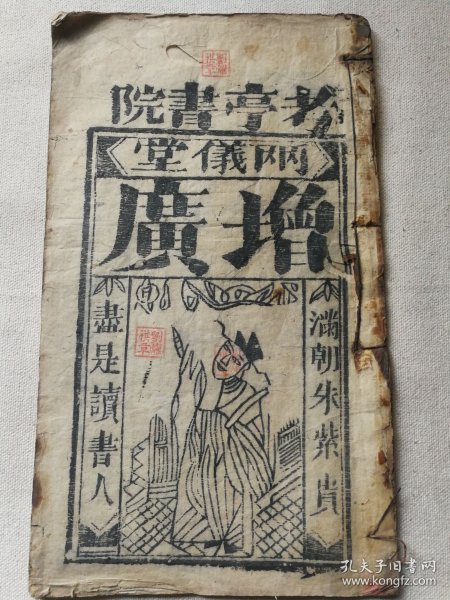 考亭書院
兩儀堂
增廣
滿朝朱紫貴
盡是讀書人
孔夫子旧书网
www.kongfz.com